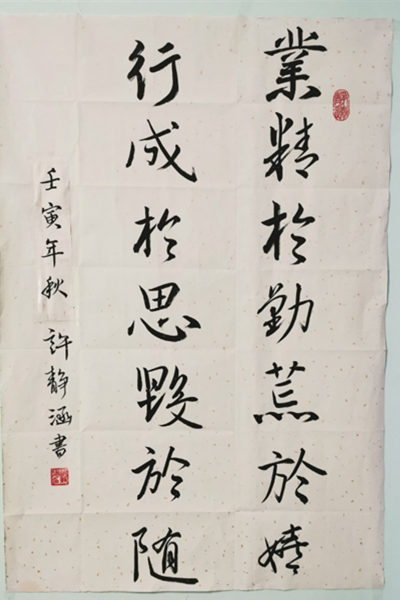 業精於勤荒於嬉
行成於思毁於随
壬寅年秋 許静涵書